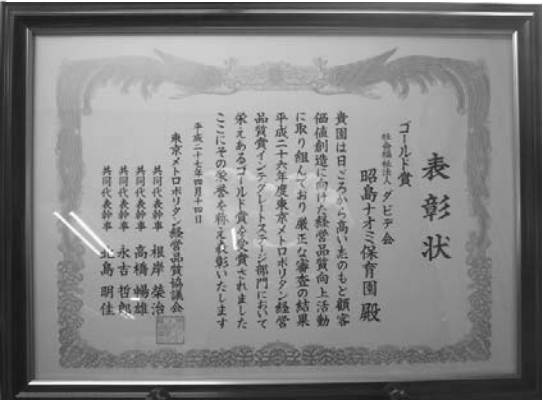 表彰状
ゴールド賞
社会福祉法人 ダビデ会
昭島ナオミ保育園 殿
貴園は日ごろから高い志のもと顧客
価値創造に向けた経営品質向上活動
に取り組んでおり厳正な審査の結果
平成二十六年度東京メトロポリタン経営
品質賞インテグレートステージ部門において
栄えあるゴールド賞を受賞されました
ここにその栄誉を称え表彰いたします
平成二十七年四月十四日
東京メトロポリタン経営品質協議会
共同代表幹事 根岸 榮治
共同代表幹事 高橋 暢雄
共同代表幹事 永吉 哲郎
共同代表幹事 北島 明佳